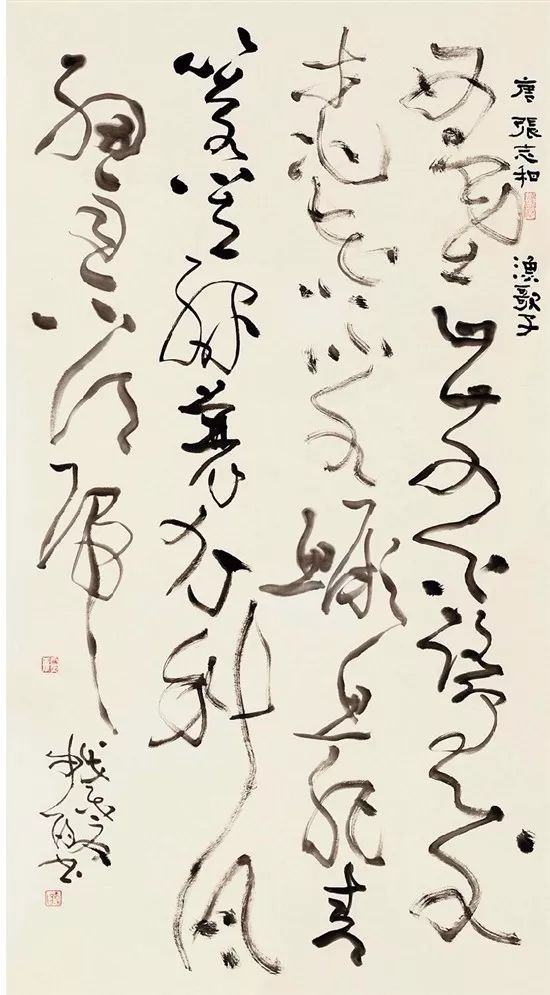 唐 張志和 漁歌子
西塞山前白鷺飛
桃花流水鱖魚肥青
箬笠綠蓑衣斜風
細雨不須歸